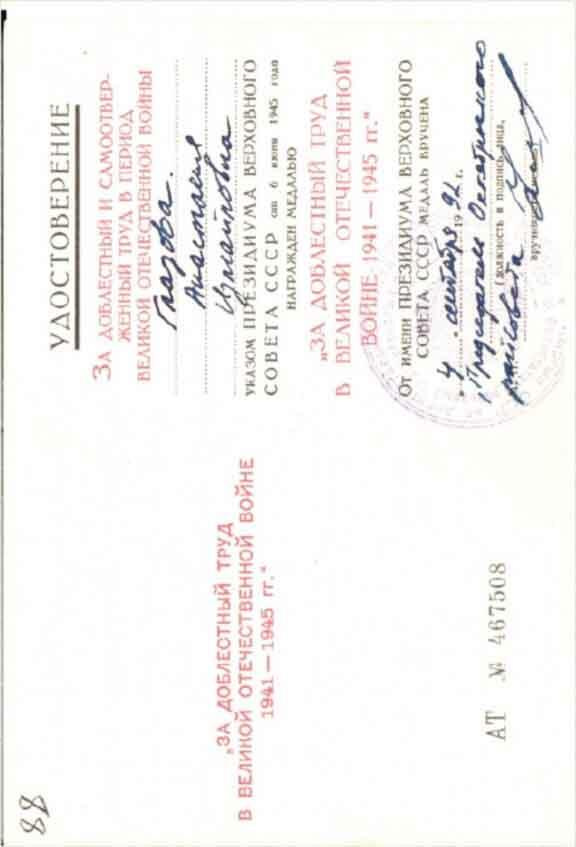 88
„ЗА ДОБЛЕСТНЫЙ ТРУД
В ВЕЛИКОЙ ОТЕЧЕСТВЕННОЙ ВОЙНЕ
1941—1945 гг.“
АТ № 467508
УДОСТОВЕРЕНИЕ
ЗА ДОБЛЕСТНЫЙ И САМООТВЕР-
ЖЕННЫЙ ТРУД В ПЕРИОД
ВЕЛИКОЙ ОТЕЧЕСТВЕННОЙ ВОЙНЫ
Глазова.
Анастасия
Измайловна
УКАЗОМ ПРЕЗИДИУМА ВЕРХОВНОГО
СОВЕТА СССР от 6 июня 1945 года
НАГРАЖДЕН МЕДАЛЬЮ
„ЗА ДОБЛЕСТНЫЙ ТРУД
В ВЕЛИКОЙ ОТЕЧЕСТВЕННОЙ
ВОЙНЕ 1941—1945 гг.“
ОТ ИМЕНИ ПРЕЗИДИУМА ВЕРХОВНОГО
СОВЕТА СССР МЕДАЛЬ ВРУЧЕНА
„4 . сентября 1992 г.
Председатель Октябрьского
(должность и подпись лица,
райсовета